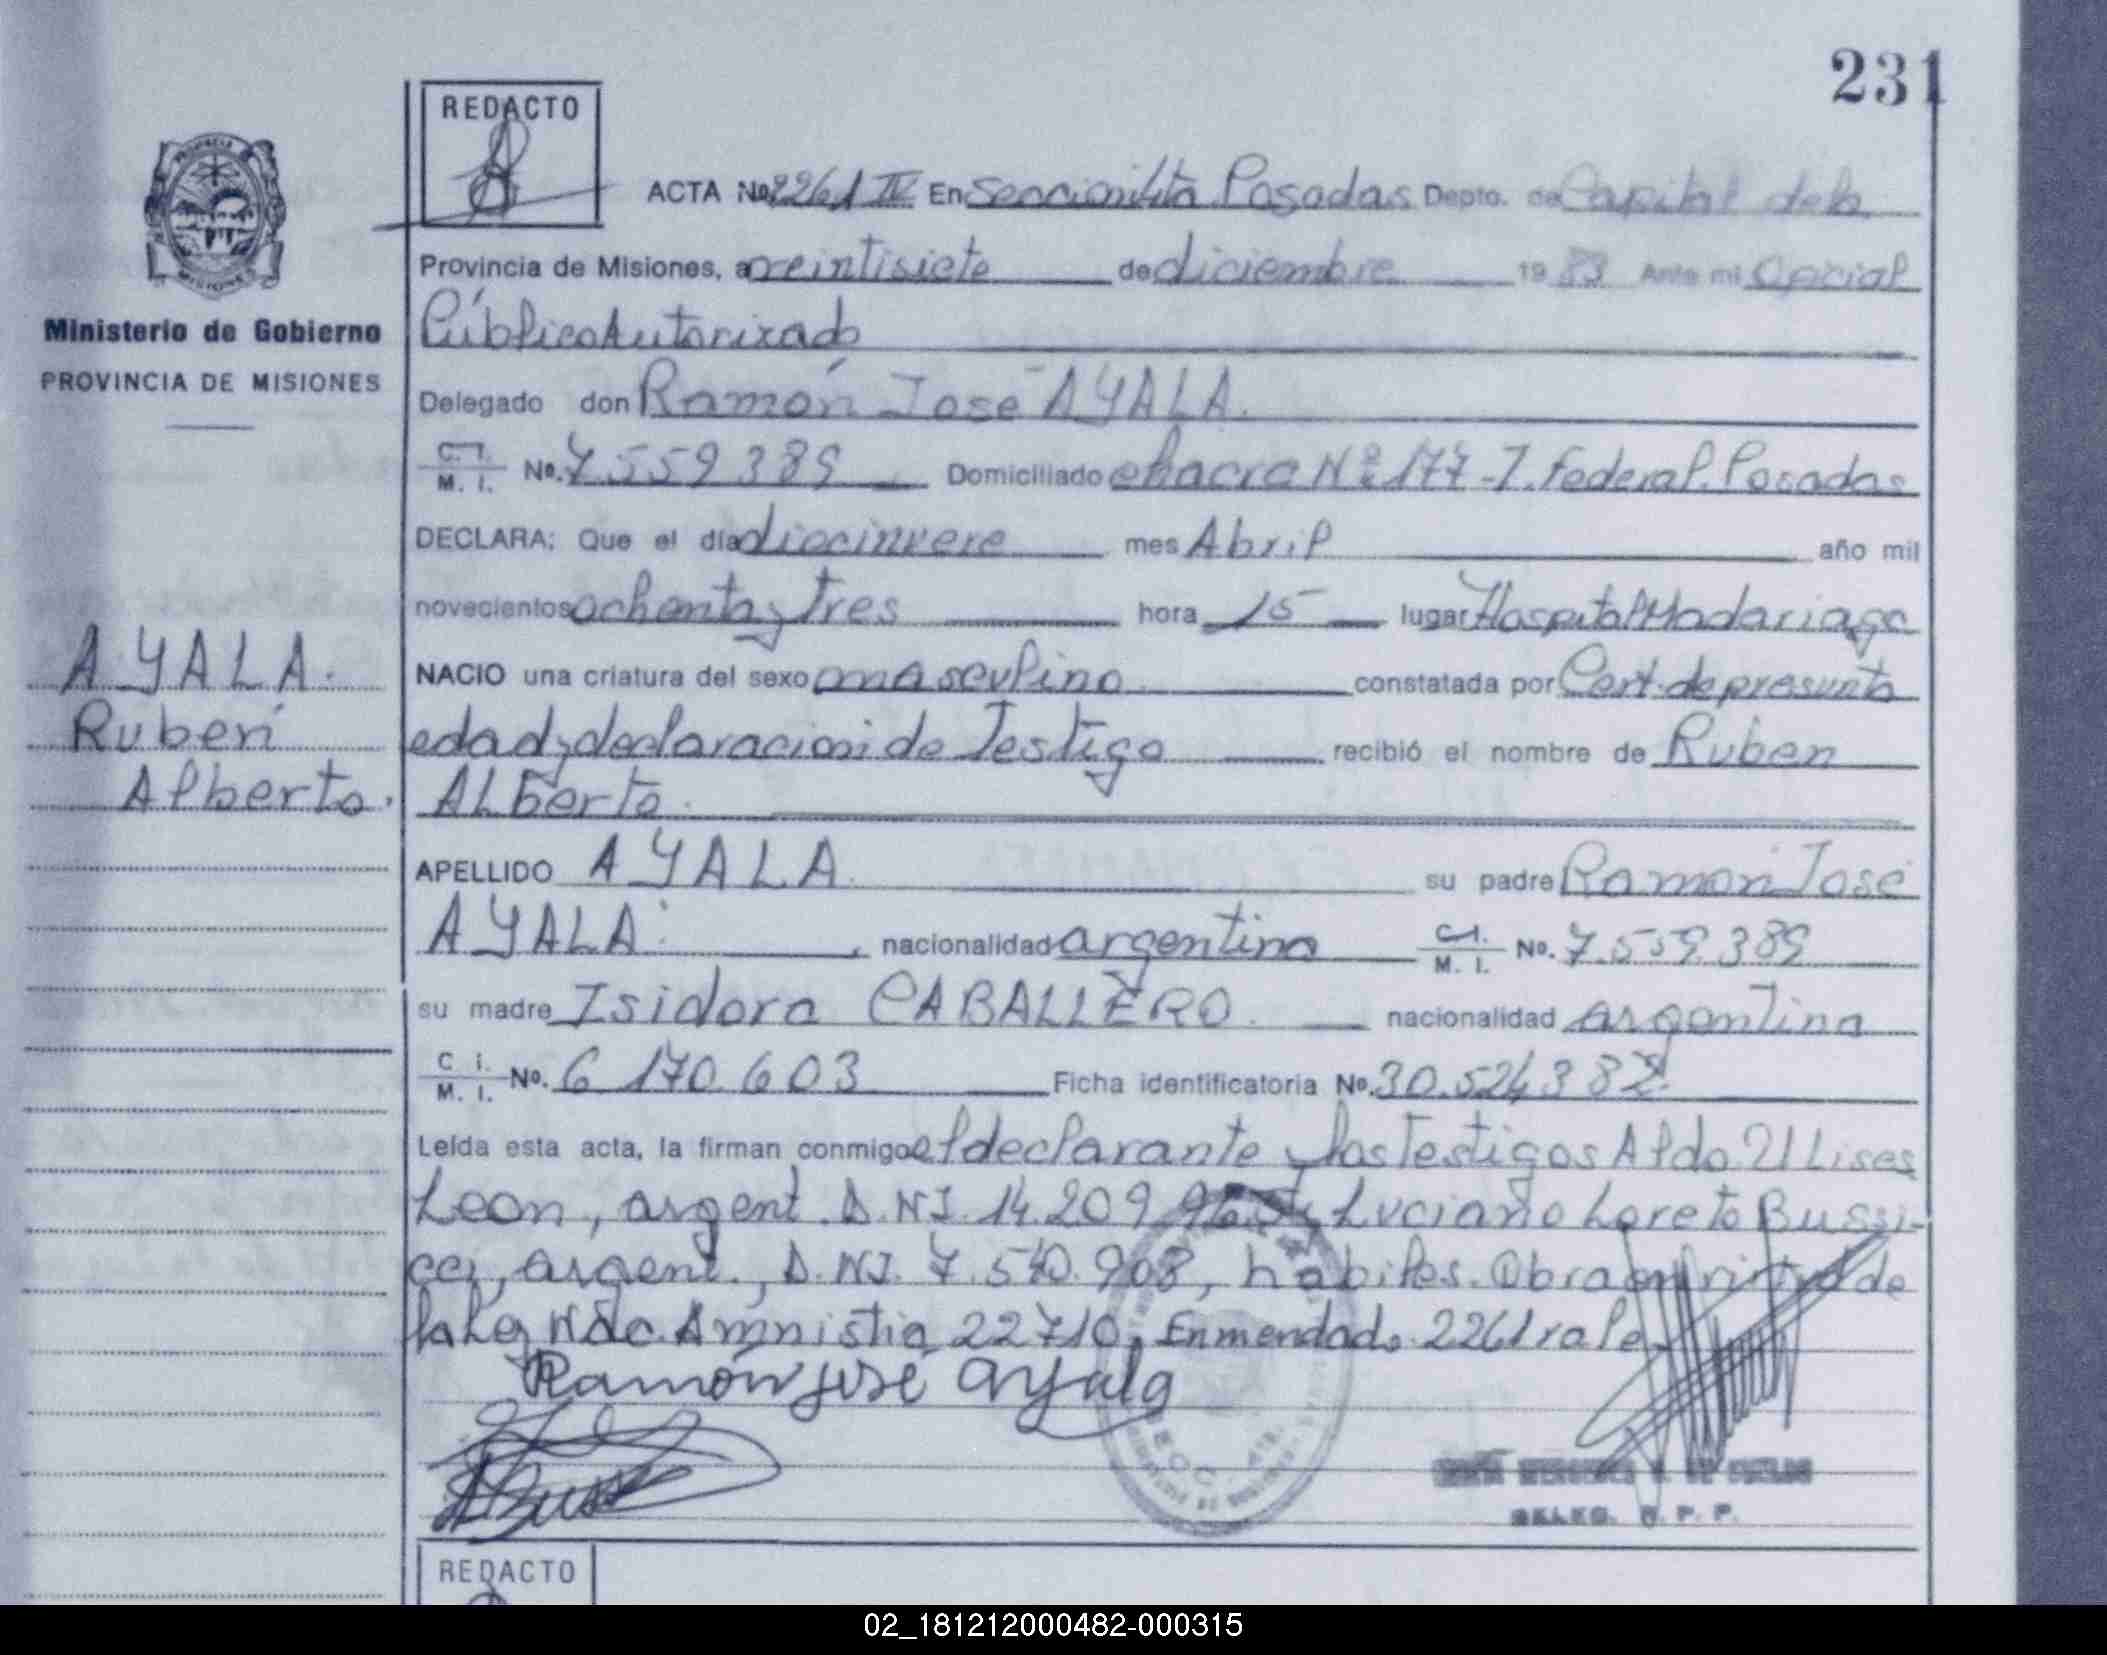 231
REDACTO
ACTA No. 2261 IV En Seccionilita Posadas Depto. de Capital de la
Provincia de Misiones, a veintisiete de diciembre 1983 Ante mi Oficial
Público Autorizado
Ministerio de Gobierno
PROVINCIA DE MISIONES
Delegado don Ramón José AYALA.
C. I. M. I. No. 7.559.389 Domiciliado chacra Nº 177-I. Federal. Posadas
DECLARA: Que el día diecinueve mes Abril año mil
novecientos ochenta y tres hora 15 lugar Hospital Madariaga
NACIO una criatura del sexo masculino constatada por Cert. de presunta
edad y declaracion de Testigo recibió el nombre de Ruben
Alberto.
AYALA.
Ruben
Alberto.
APELLIDO AYALA. su padre Ramón José
AYALA. nacionalidad argentina C.I. M. I. No. 7.559.389
su madre Isidora CABALLERO. nacionalidad argentina
C. I. M. I. No. 6.170.603 Ficha identificatoria No. 30.524.387
Leída esta acta, la firman conmigo el declarante y los Testigos Aldo Ulises
Leon, argent. D.NI. 14.209 y Luciano Loreto Bussi-
argent., D.NI. 7.540.908, hábiles. Obra en virtud de
la Ley Nac. Amnistia 22710, Enmendado 2261 vale.
Ramón José Ayala
DELEG. R. P. P.
REDACTO
02_181212000482-000315